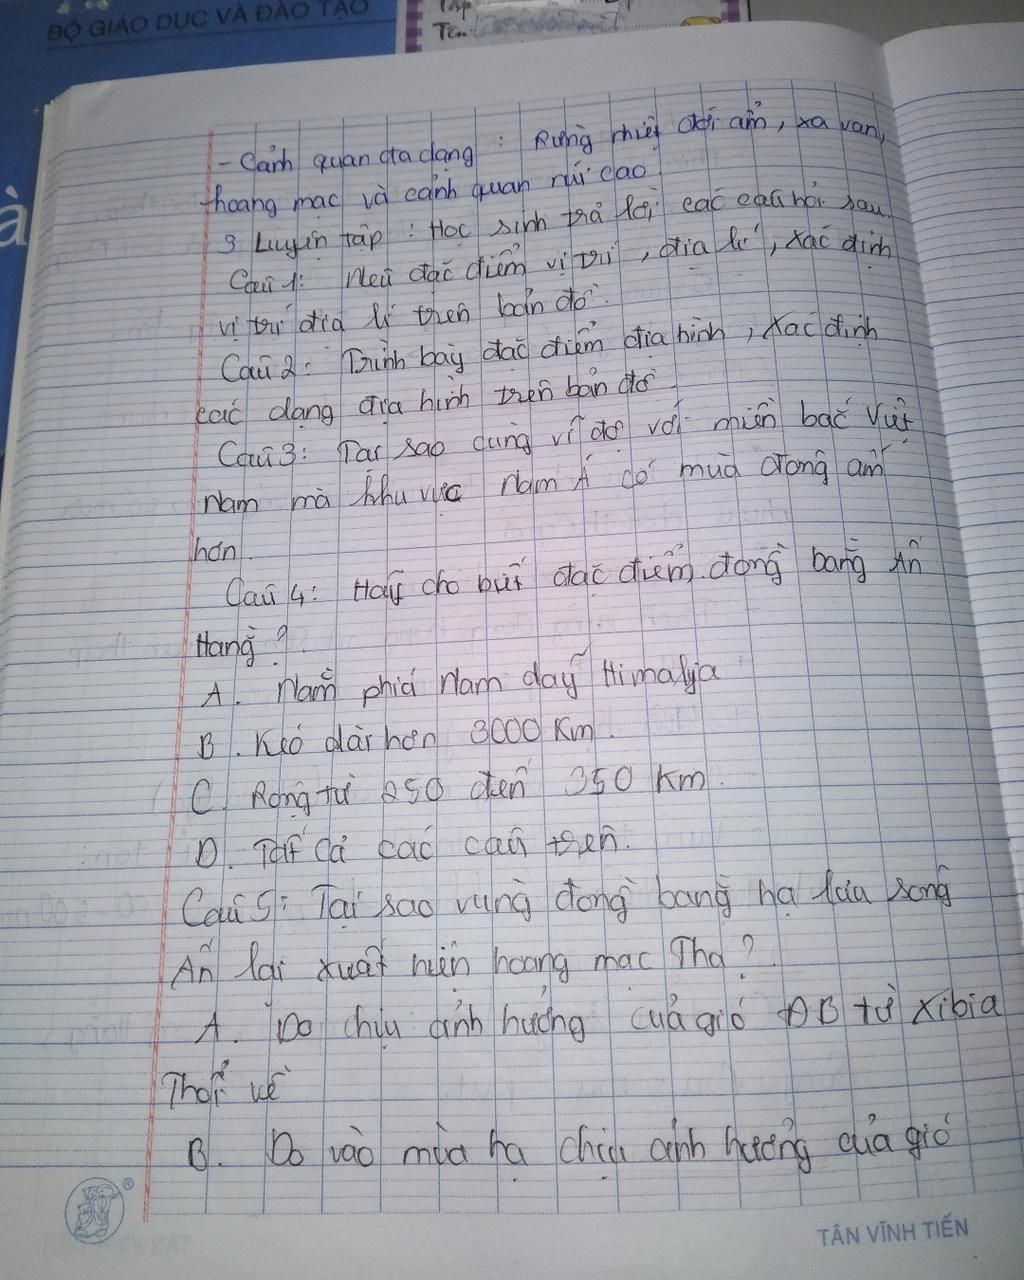 BỘ GIÁO DỤC VÀ ĐÀO TẠO
Tên:
- Cảnh quan đa dạng : Rừng nhiệt đới ẩm, xa van,
hoang mạc và cảnh quan núi cao.
3 Luyện tập : Học sinh trả lời các câu hỏi sau
Câu 1: Nêu đặc điểm vị trí, địa lí, xác định
vị trí địa lí trên bản đồ.
Câu 2: Trình bày đặc điểm địa hình, xác định
các dạng địa hình trên bản đồ.
Câu 3: Tại sao cùng vĩ độ với miền bắc Việt
Nam mà khu vực Nam Á có mùa đông ấm
hơn.
Câu 4: Hãy cho biết đặc điểm đồng bằng Ấn
Hằng ?
A. Nằm phía Nam dãy Himalya
B. Kéo dài hơn 3000 Km.
C. Rộng từ 250 đến 350 Km.
D. Tất cả các câu trên.
Câu 5: Tại sao vùng đồng bằng hạ lưu sông
Ấn lại xuất hiện hoang mạc Tha ?
A. Do chịu ảnh hưởng của gió ĐB từ Xibia
Thổi về
B. Do vào mùa hạ chịu ảnh hưởng của gió
TÂN VĨNH TIẾN